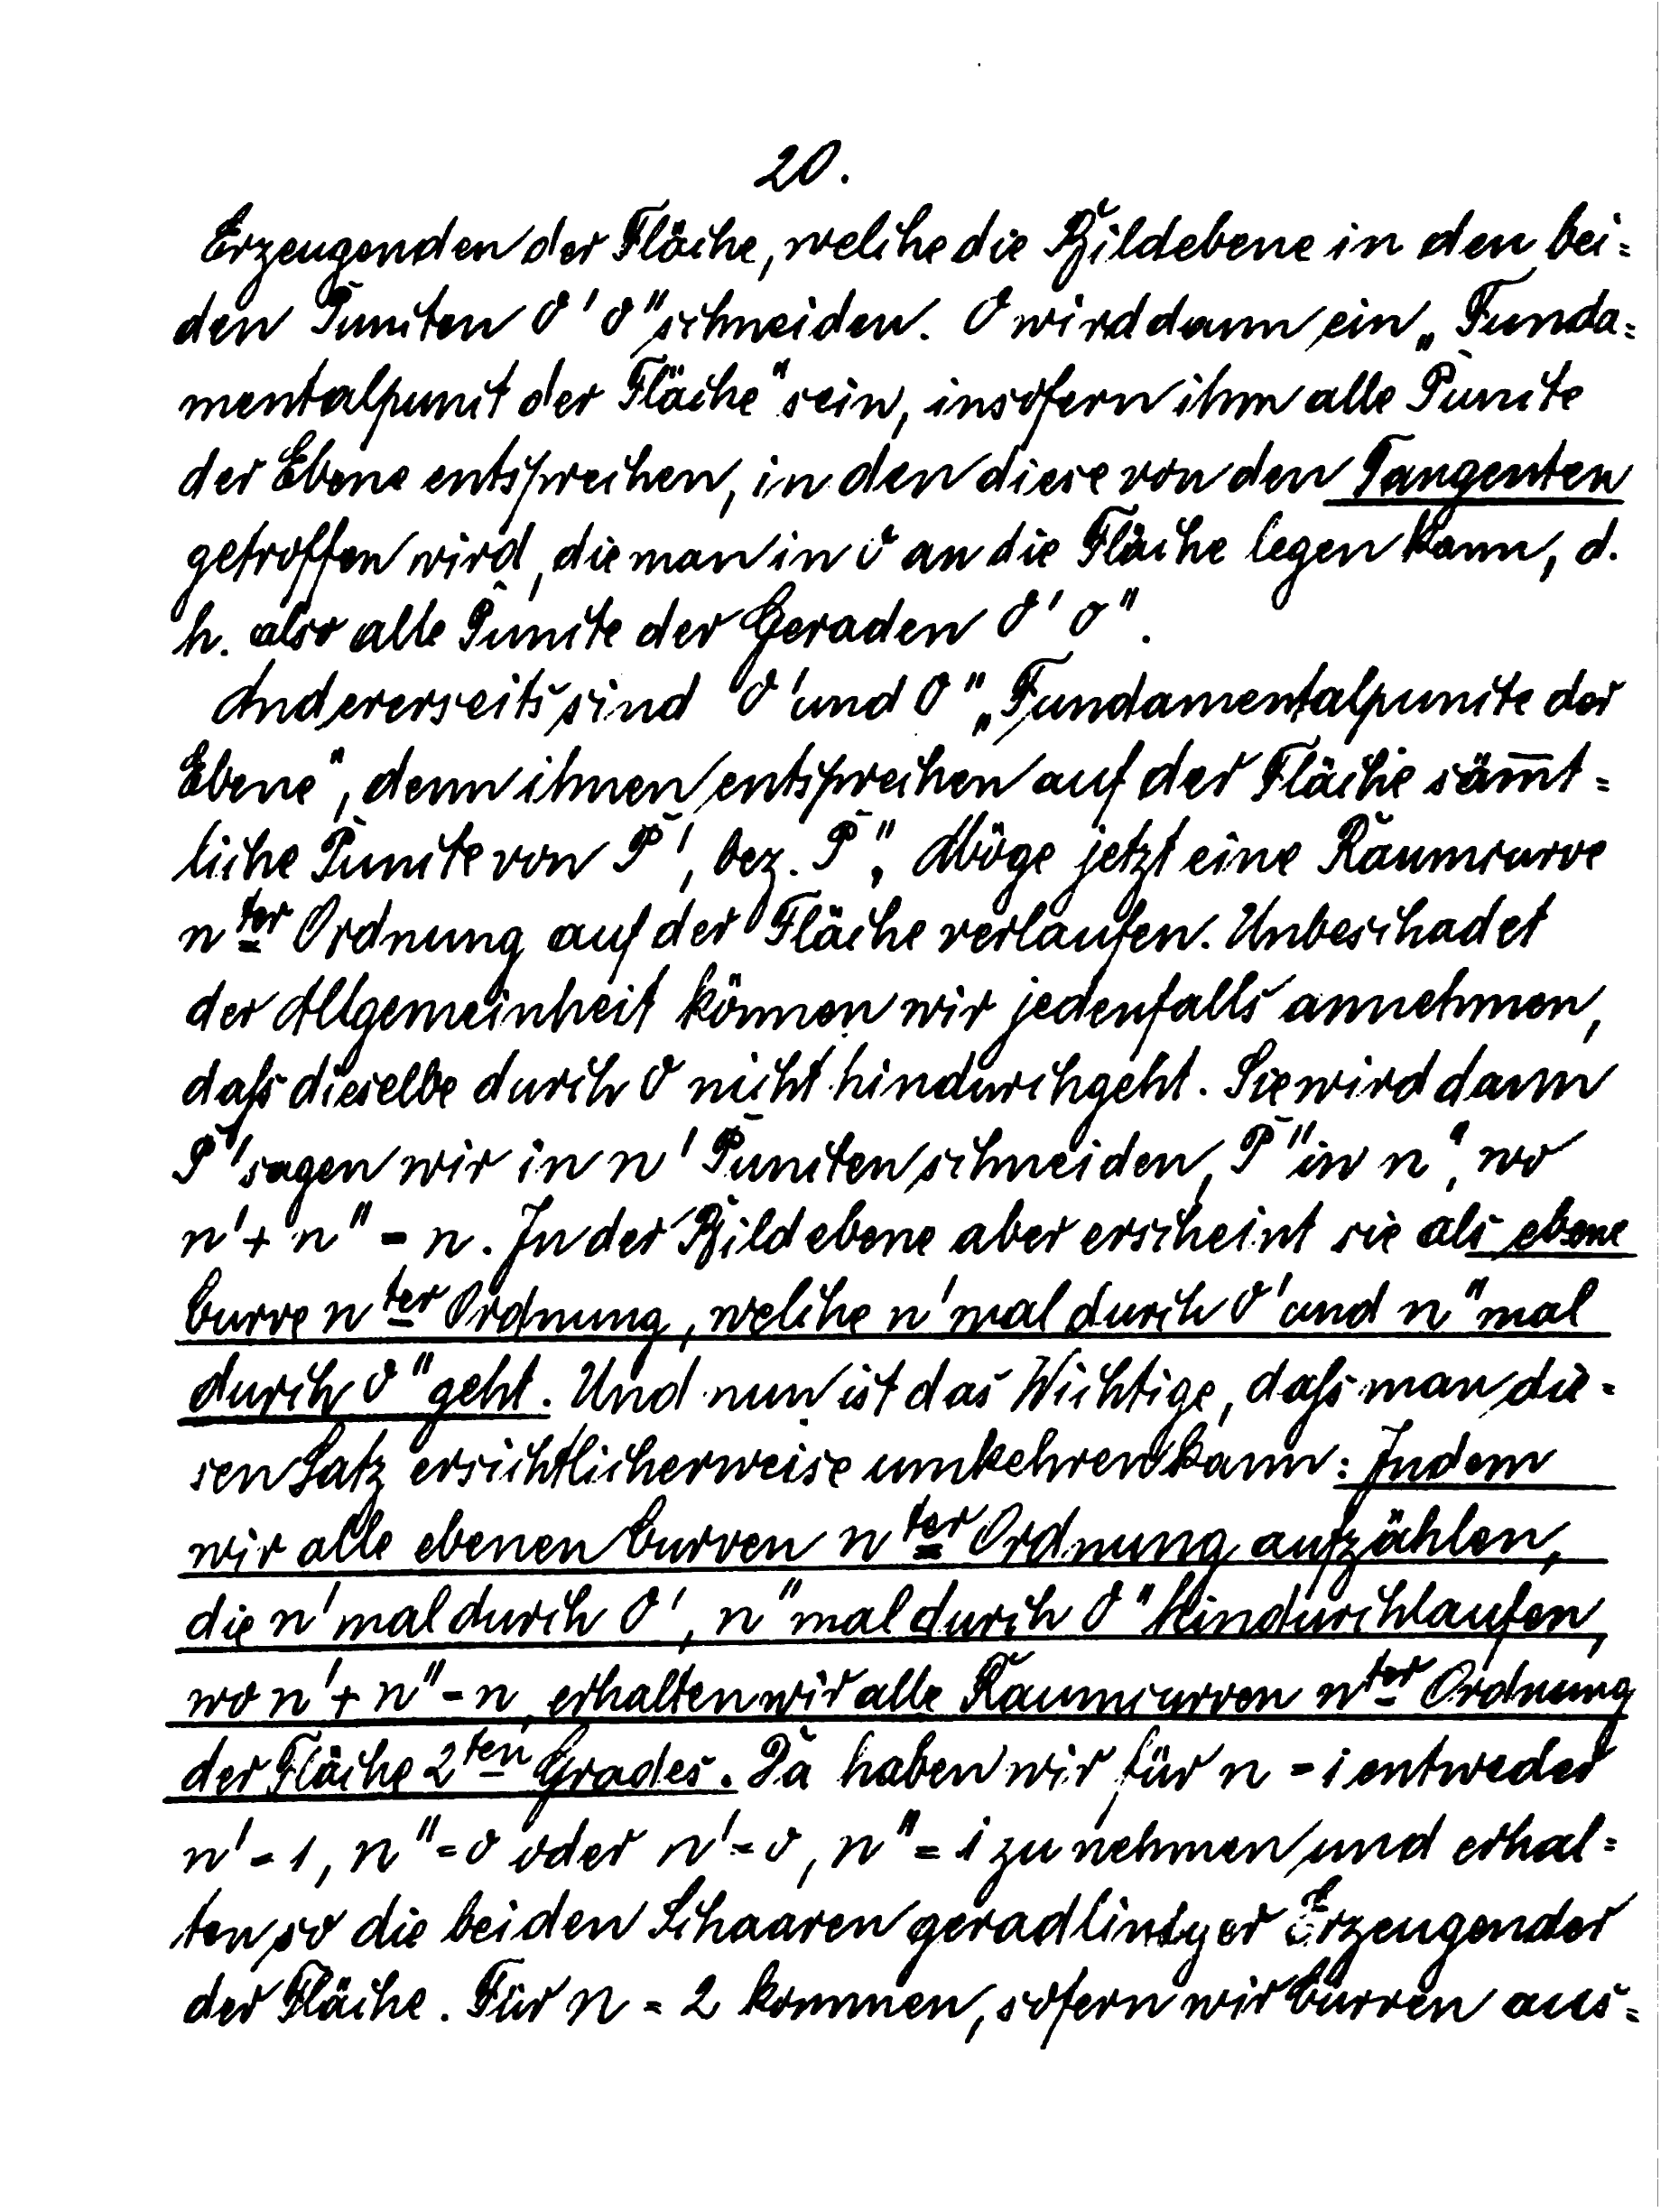 20.
Erzeugenden der Fläche, welche die Bildebene in den bei=
den Puncten O' O" schneiden. O wird dann ein „Funda=
mentalpunct der Fläche" sein, insofern ihm alle Puncte
der Ebene entsprechen, in den diese von den Tangenten
getroffen wird, die man in O an die Fläche legen kann, d.
h. also alle Puncte der Geraden O' O".
Andererseits sind O' und O" „Fundamentalpuncte der
Ebene", denn ihnen entsprechen auf der Fläche säm̅t=
liche Puncte von P', bez. P". Möge jetzt eine Raumcurve
n ter Ordnung auf der Fläche verlaufen. Unbeschadet
der Allgemeinheit können wir jedenfalls annehmen,
daß dieselbe durch O nicht hindurchgeht. Sie wird dann
P' sagen wir in n' Puncten schneiden, P" in n", wo
n' + n" = n. In der Bildebene aber erscheint sie als ebene
Curve n ter Ordnung, welche n' mal durch O' und n" mal
durch O" geht. Und nun ist das Wichtige, daß man die=
sen Satz ersichtlicherweise umkehren kann: Indem
wir alle ebenen Curven n ter Ordnung aufzählen,
die n' mal durch O', n" mal durch O" hindurchlaufen,
wo n' + n" = n, erhalten wir alle Raumcurven n ter Ordnung
der Fläche 2 ten Grades. Da haben wir für n = 1 entweder
n' = 1, n" = 0 oder n' = 0, n" = 1 zu nehmen und erhal=
ten so die beiden Schaaren geradliniger Erzeugender
der Fläche. Für n = 2 kommen, sofern wir Curven aus=